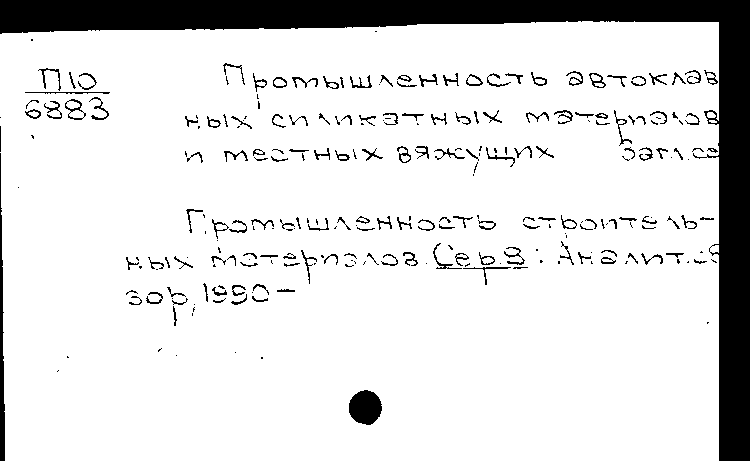 П10
6883
Промышленность автоклав
ных силикатных материалов
и местных вяжущих Загл.се
Промышленность строитель-
ных материалов. Сер.8: Аналит.
зор, 1990-